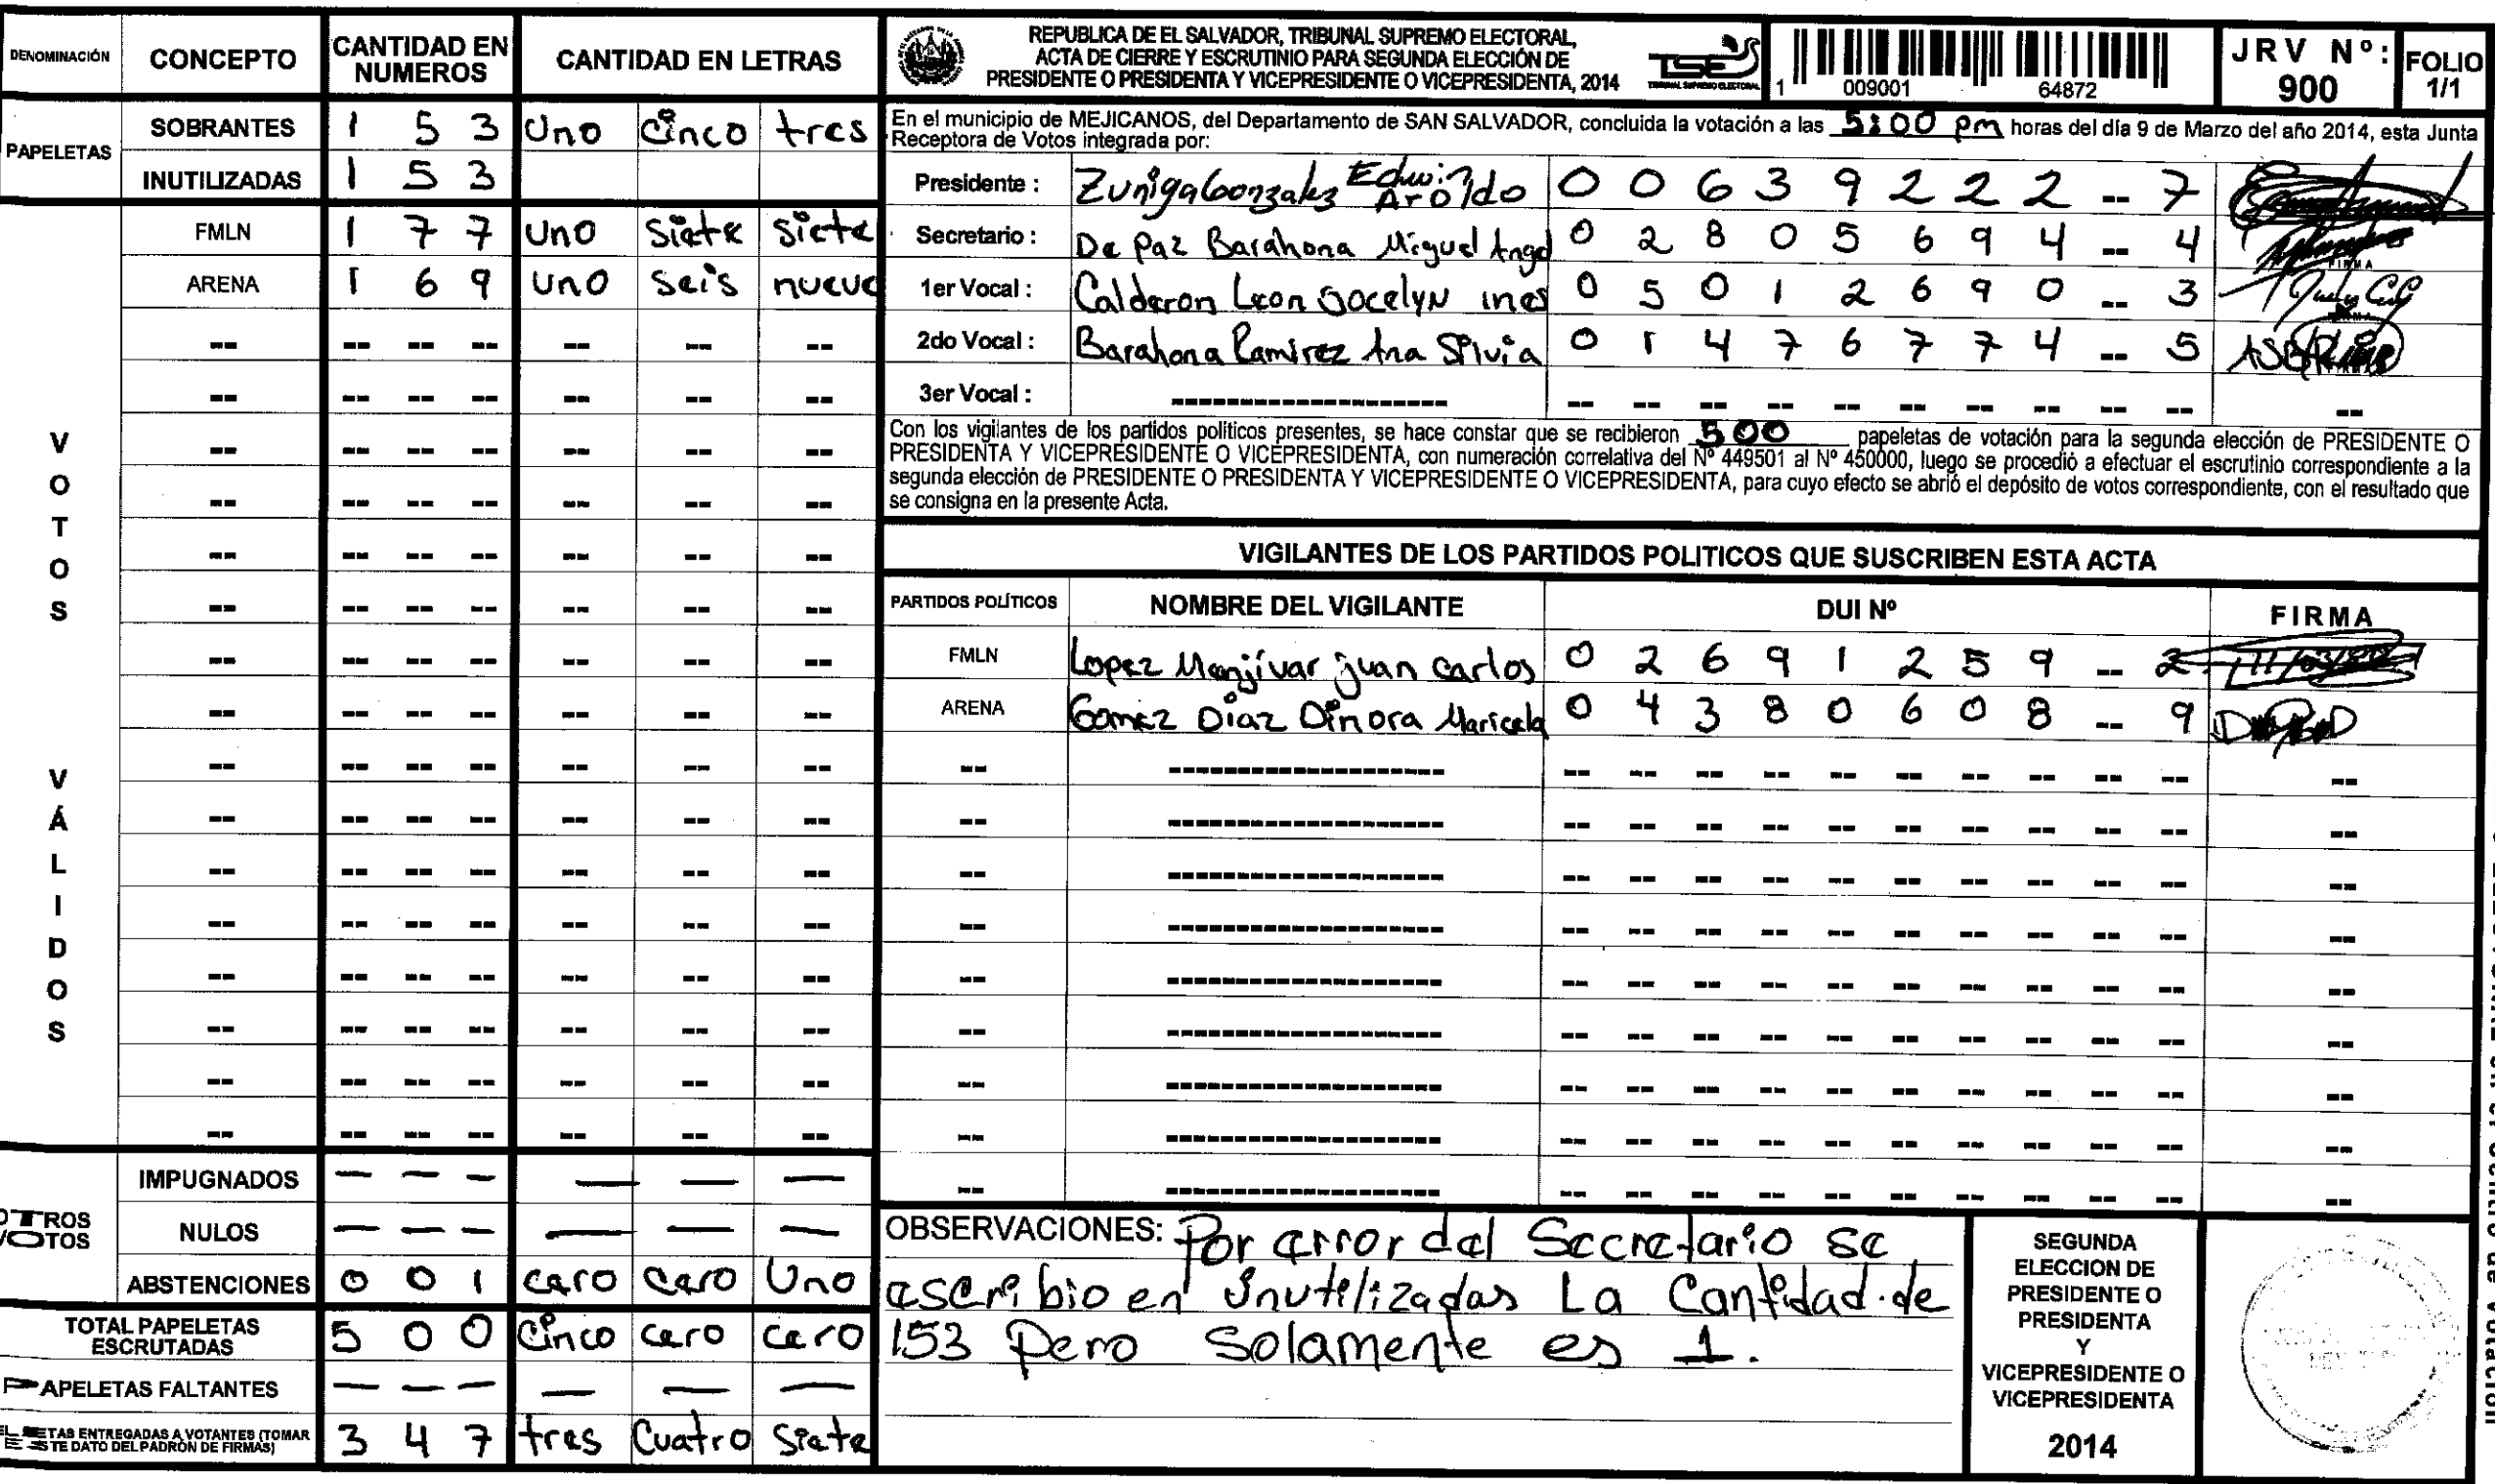 DENOMINACIÓN CONCEPTO CANTIDAD EN NUMEROS CANTIDAD EN LETRAS
PAPELETAS
SOBRANTES 1 5 3 Uno Cinco tres
INUTILIZADAS 1 5 3
VOTOS VÁLIDOS
FMLN 1 7 7 Uno Siete Siete
ARENA 1 6 9 Uno Seis nueve
OTROS VOTOS
IMPUGNADOS — — — — — —
NULOS — — — — — —
ABSTENCIONES 0 0 1 cero cero Uno
TOTAL PAPELETAS ESCRUTADAS 5 0 0 Cinco cero cero
PAPELETAS FALTANTES — — — — — —
ETAS ENTREGADAS A VOTANTES (TOMAR
ESTE DATO DEL PADRÓN DE FIRMAS) 3 4 7 tres Cuatro Siete
REPUBLICA DE EL SALVADOR, TRIBUNAL SUPREMO ELECTORAL,
ACTA DE CIERRE Y ESCRUTINIO PARA SEGUNDA ELECCIÓN DE
PRESIDENTE O PRESIDENTA Y VICEPRESIDENTE O VICEPRESIDENTA, 2014
TSE
TRIBUNAL SUPREMO ELECTORAL
1 009001 64872
JRV Nº: 900
FOLIO 1/1
En el municipio de MEJICANOS, del Departamento de SAN SALVADOR, concluida la votación a las 5:00 pm horas del día 9 de Marzo del año 2014, esta Junta
Receptora de Votos integrada por:
Presidente : Zuniga Gonzalez Edwin Aroldo 0 0 6 3 9 2 2 2 -- 7
Secretario : De Paz Barahona Miguel Angel 0 2 8 0 5 6 9 4 -- 4
FIRMA
1er Vocal : Calderon Leon Jocelyn ines 0 5 0 1 2 6 9 0 -- 3
2do Vocal : Barahona Ramirez Ana Silvia 0 1 4 7 6 7 7 4 -- 5
3er Vocal :
Con los vigilantes de los partidos politicos presentes, se hace constar que se recibieron 500 papeletas de votación para la segunda elección de PRESIDENTE O
PRESIDENTA Y VICEPRESIDENTE O VICEPRESIDENTA, con numeración correlativa del Nº 449501 al Nº 450000, luego se procedió a efectuar el escrutinio correspondiente a la
segunda elección de PRESIDENTE O PRESIDENTA Y VICEPRESIDENTE O VICEPRESIDENTA, para cuyo efecto se abrió el depósito de votos correspondiente, con el resultado que
se consigna en la presente Acta.
VIGILANTES DE LOS PARTIDOS POLITICOS QUE SUSCRIBEN ESTA ACTA
PARTIDOS POLÍTICOS NOMBRE DEL VIGILANTE DUI Nº FIRMA
FMLN Lopez Menjívar juan carlos 0 2 6 9 1 2 5 9 -- 2
ARENA Gomez Diaz Dinora Maricela 0 4 3 8 0 6 0 8 -- 9
OBSERVACIONES: Por error del Secretario se
escribio en Inutilizadas La Cantidad de
153 Pero Solamente es 1.
SEGUNDA
ELECCION DE
PRESIDENTE O
PRESIDENTA
Y
VICEPRESIDENTE O
VICEPRESIDENTA
2014
centro de votación